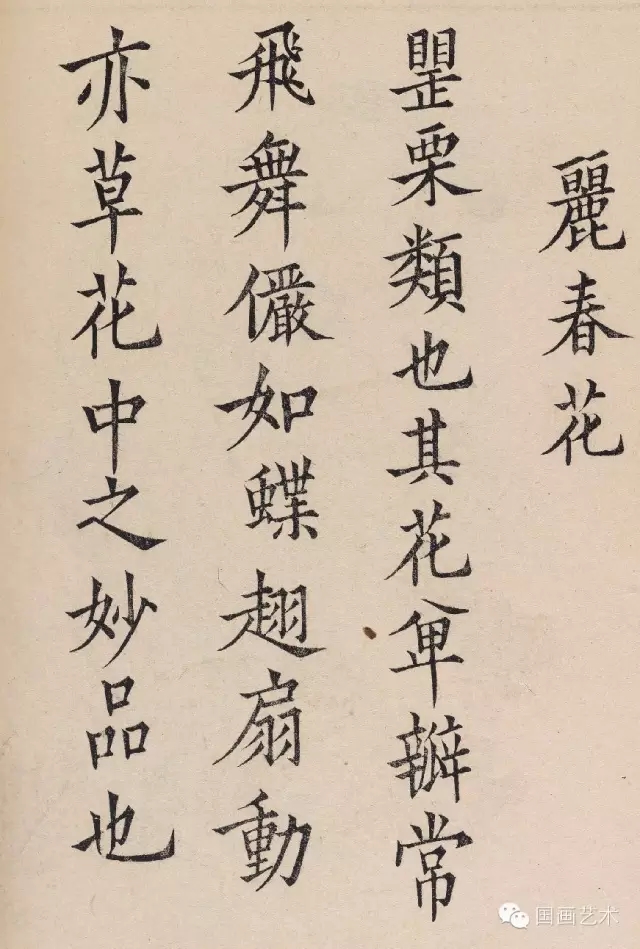 麗春花
罌栗類也其花單瓣常
飛舞儼如蝶趐扇動
亦草花中之妙品也
国画艺术